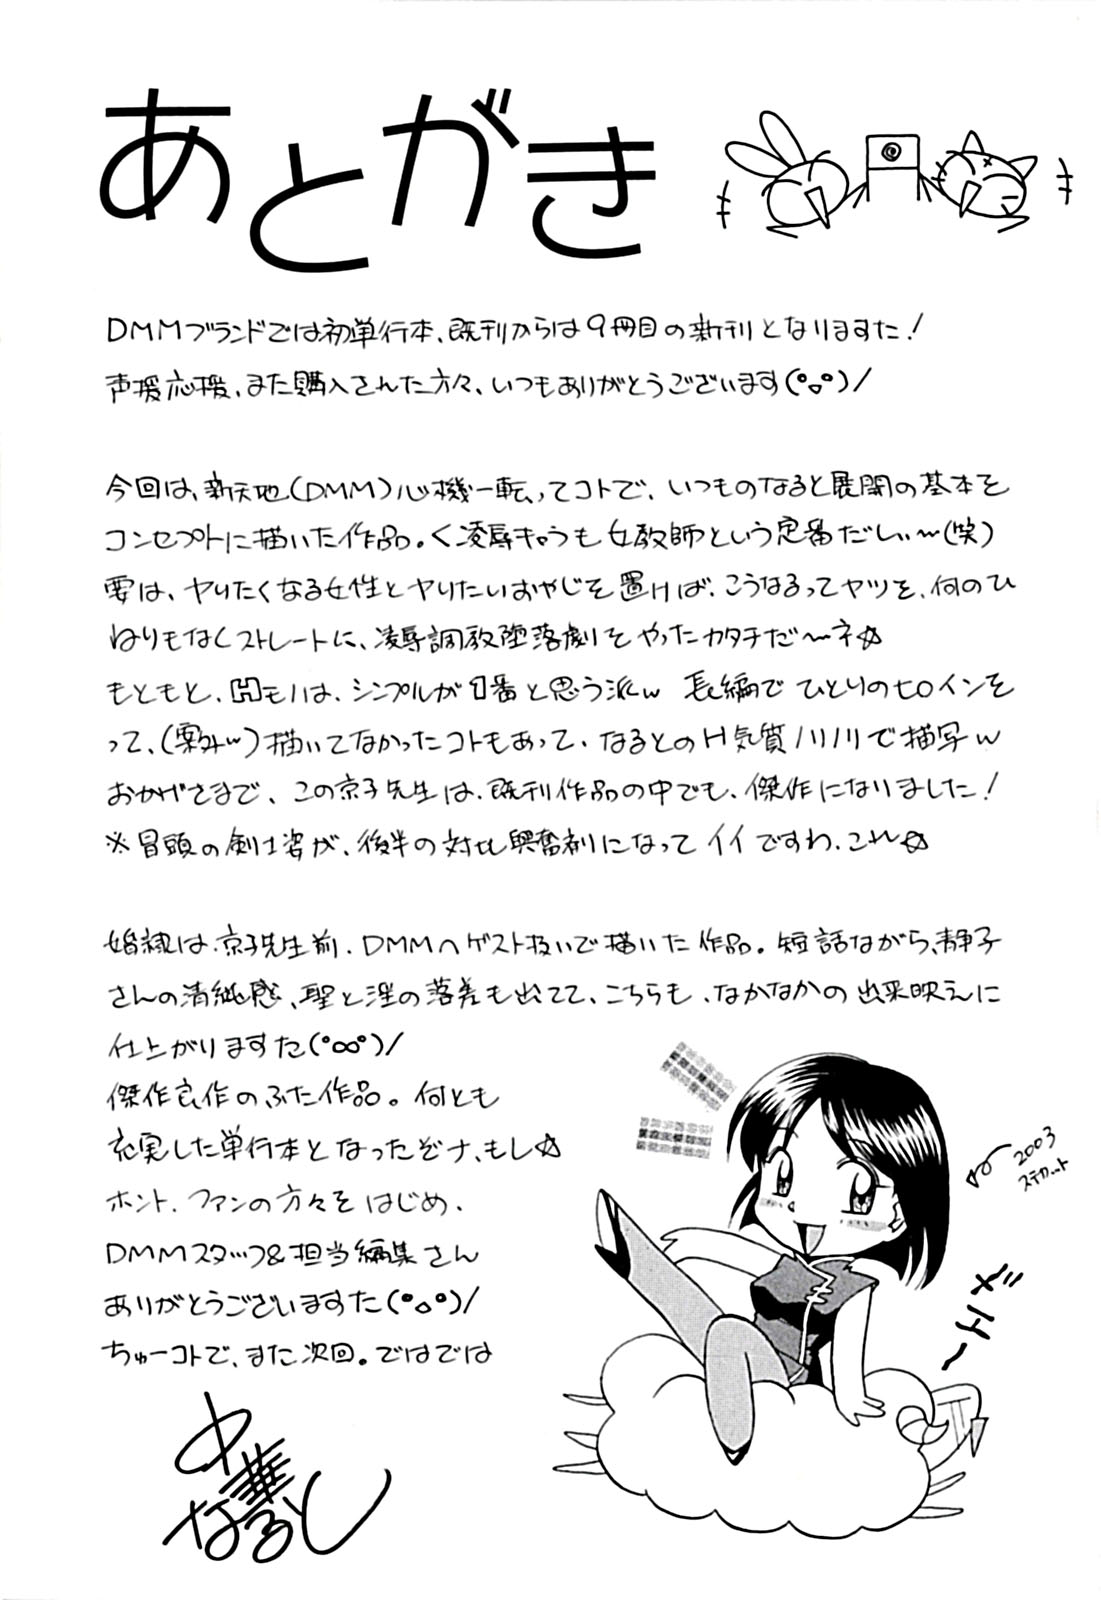 あとがき
DMMブランドでは初単行本、既刊からは9冊目の新刊となりますた!
声援応援、また購入された方々、いつもありがとうございます(°o°)/
今回は、新天地(DMM)心機一転ってコトで、いつものなると展開の基本を
コンセプトに描いた作品。く凌辱キャラも女教師という定番だしぃ~(笑)
要は、ヤりたくなる女性とヤりたいおやじを置けば、こうなるってヤツを、何のひ
ねりもなくストレートに、凌辱調教堕落劇をやったカタチだ~ネ☆
もともと、Hモノは、シンプルが1番と思う派w 長編でひとりのヒロインを
って、(案外~)描いてなかったコトもあって、なるとのH気質ノリノリで描写w
おかげさまで、この京子先生は、既刊作品の中でも、傑作になりました!
※冒頭の剣士姿が、後半の対比興奮剤になってイイですわ、これ☆
婚隷は、京子先生前、DMMへゲスト扱いで描いた作品。短話ながら、静子
さんの清純感、聖と淫の落差も出てて、こちらも、なかなかの出来映えに
仕上がりますた(°∞°)/
傑作良作のふた作品。何とも
充実した単行本となったぞナ、もし☆
ホント、ファンの方々をはじめ、
DMMスタッフ&担当編集さん
ありがとうございますた(°o°)/
ちゅーコトで、また次回。ではでは
中華なると
2003
ステカット
メエ~